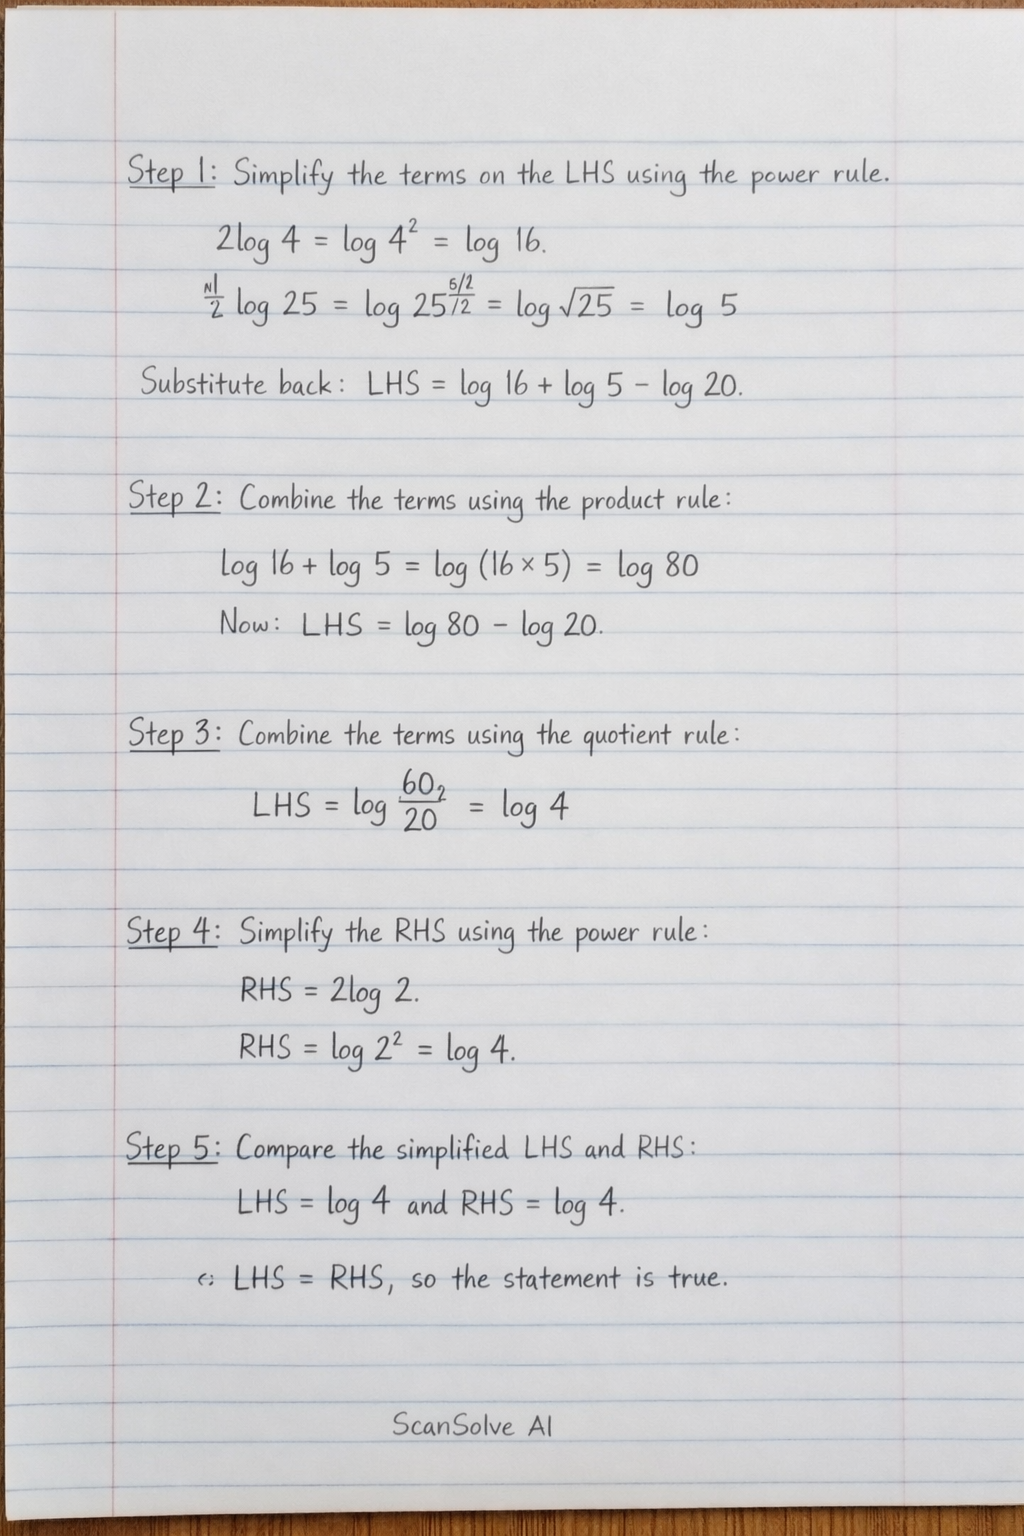 Step 1: Simplify the terms on the LHS using the power rule.
2log 4 = log 4² = log 16.
½ log 25 = log 25^5/2 /2 = log √25 = log 5
Substitute back: LHS = log 16 + log 5 − log 20.
Step 2: Combine the terms using the product rule:
log 16 + log 5 = log (16 × 5) = log 80
Now: LHS = log 80 − log 20.
Step 3: Combine the terms using the quotient rule:
LHS = log 60₂/20 = log 4
Step 4: Simplify the RHS using the power rule:
RHS = 2log 2.
RHS = log 2² = log 4.
Step 5: Compare the simplified LHS and RHS:
LHS = log 4 and RHS = log 4.
LHS = RHS, so the statement is true.
ScanSolve AI